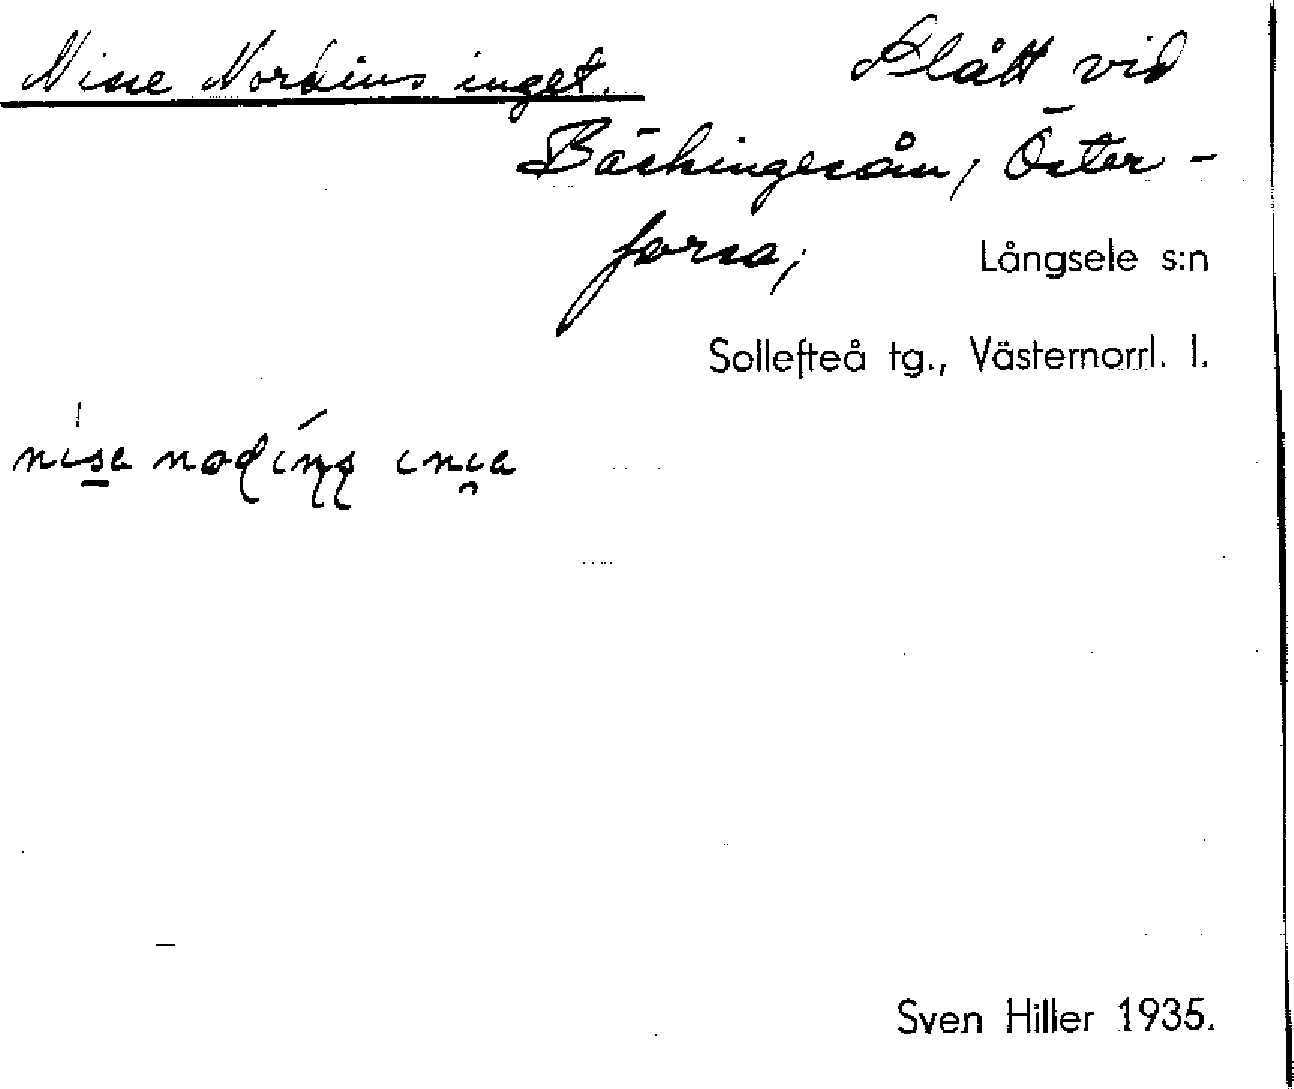 Nisse Nordins inget. Slått vid
Bäckingesån, Öster-
forsa; Långsele s:n
Sollefteå tg., Västernorrl. l.
Sven Hiller 1935.